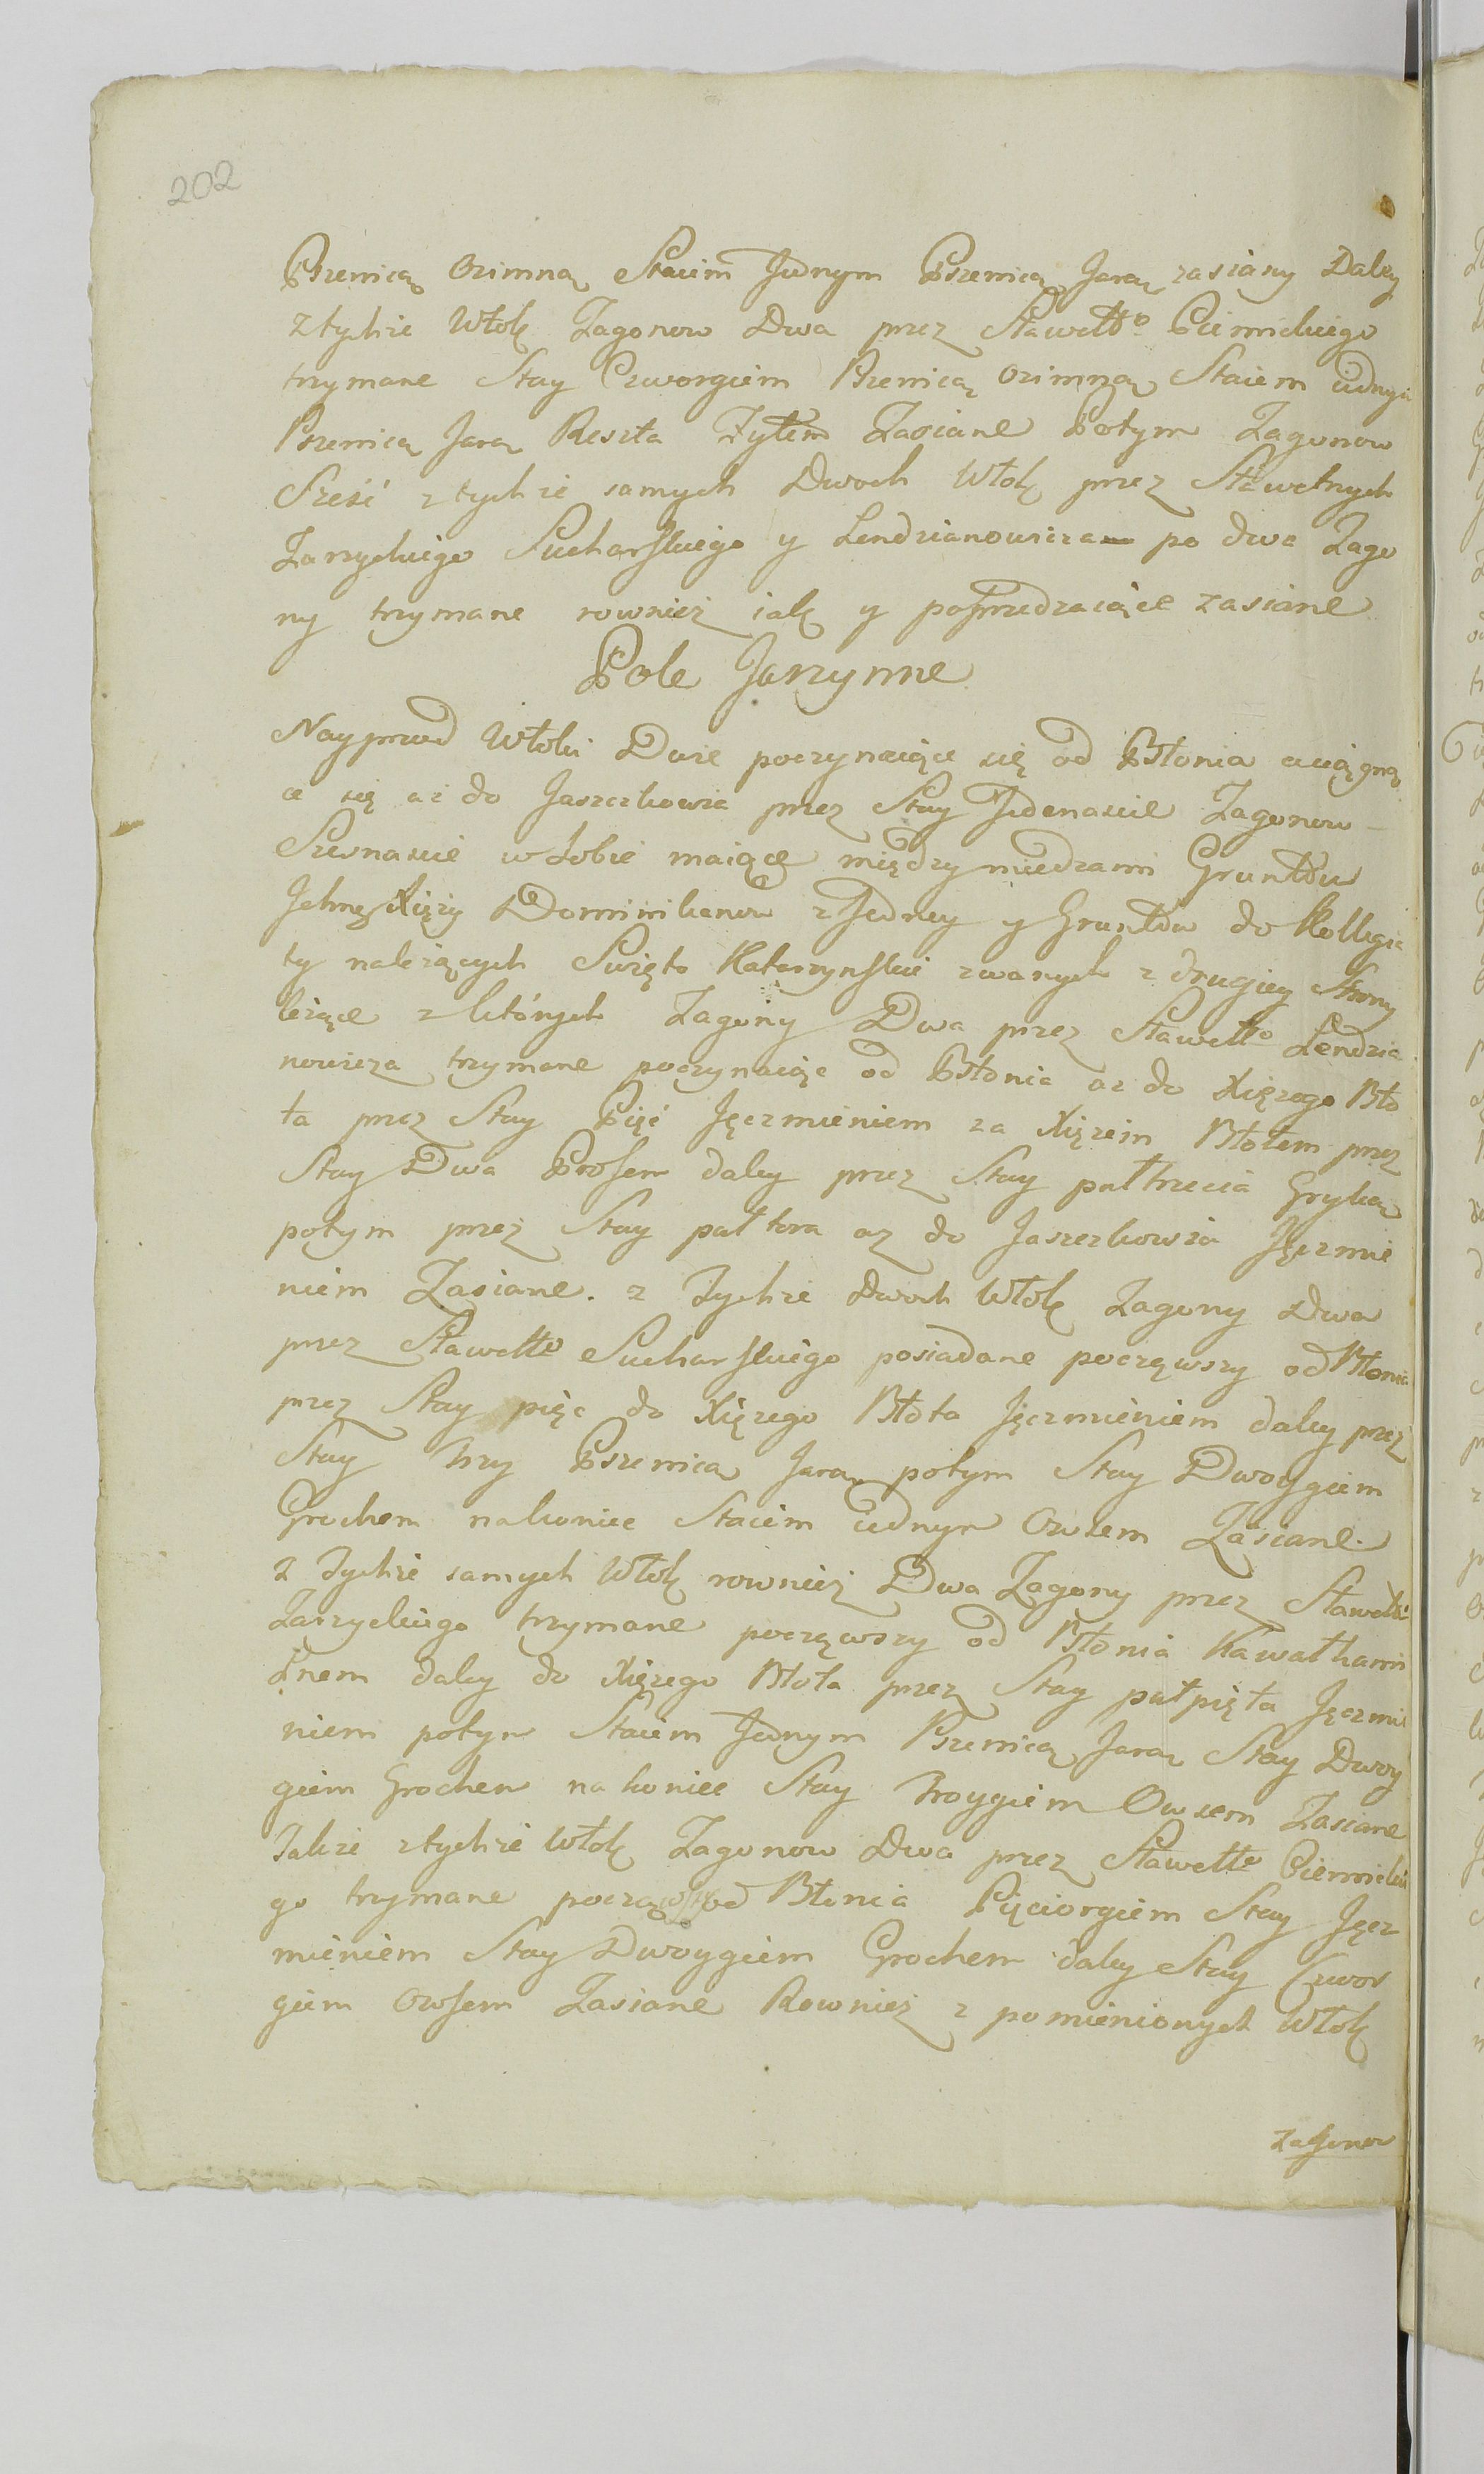 202
Pszenicą Ozimną Staiem Jednym Pszenicą Jarą zasiany Daley
Ztychże Włok Zagonow Dwa przez Sławetło Ciemnickiego
trzymane Stay Czworgiem Pszenicą Ozimną Staiem iednym
Pszenicą Jarą Reszta Żytem Zasiane Potym Zagonow
Sześć z tychże samych Dwoch Włok przez Sławetnych
Zarzyckiego Sucharskiego y Lendzianowicza po dwa Zago
ny trzymane rownież iak y poprzedzaiące zasiane
Pole Jarzynne
Nayprzod Włoki Dwie poczynaiące się od Błonia a ciągną
ce się aż do Jaszczkowia przez Stay Jedenascie Zagonow
Szesnascie w Sobie maiące między miedzami Gruntow
Jchmę Xięży Dominikanow z Jedney y Gruntow do Kollegia
ty należących Swięto Katarzynskie zwanych z drugiey Strony
leżące z ktorych Zagony Dwa przez Sławetło Lendzia
nowicza trzymane poczynaiąc od Błonia aż do Xiężego Bło
ta przez Stay Pięć Jęczmieniem za Xiężem Błotem przez
Stay Dwa Prosem daley przez Stay pułtrzecia Gryką
potym przez Stay pułtora aż do Jaszczkowia Jęczmie
niem Zasiane. z Tychże Dwoch Włok Zagony Dwa
przez Sławetło Sucharskiego posiadane począwszy od Błonia
przez Stay pięć do Xiężego Błota Jęczmieniem daley przez
Stay Trzy Pszenicą Jarą potym Stay Dwoygiem
Grochem nakoniec Staiem iednym Owsem Zasiane.
z Tychże samych Włok rownież Dwa Zagony przez Sławetło
Zarzyckiego trzymane począwszy od Błonia Kawałkami
Lnem daley do Xiężego Błota przez Stay pułpięta Jęczmie
niem potym Staiem Jednym Pszenicą Jarą Stay Dwoy
giem Grochem na koniec Stay Troygiem Owsem Zasiane
Także z tychże Włok Zagonow Dwa przez Sławetło Ciemnickie
go trzymane począwszy od Błonia Pięciorgiem Stay Jęcz
mieniem Stay Dwoygiem Grochem daley Stay Czwor
giem Owsem Zasiane Rownież z pomienionych Włok
Zagonow